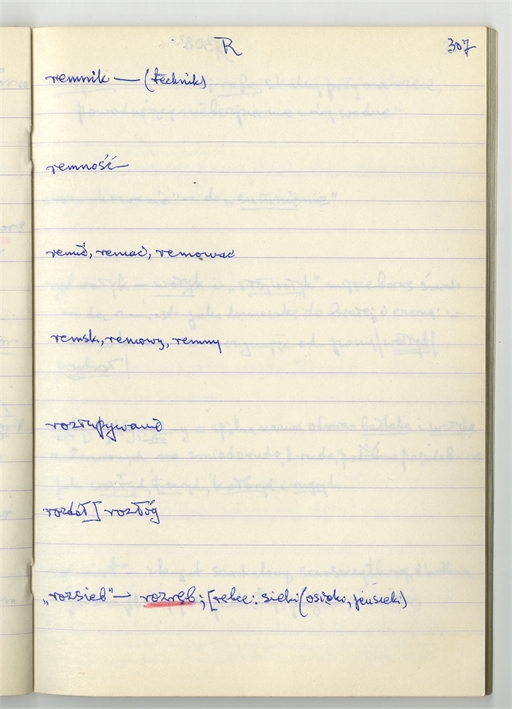 R 307
remnik — (technik)
remność —
remić, remać, remować
remsk, remowy, remny
rozłupywanie
rozdół [ rozłóg
„rozsieb" → rozrąb; [relkci: sieki (osieki, jeusieki)